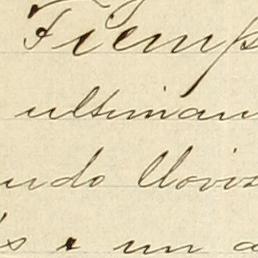 Tiemp
ultiman
ndo llovis
s
un a